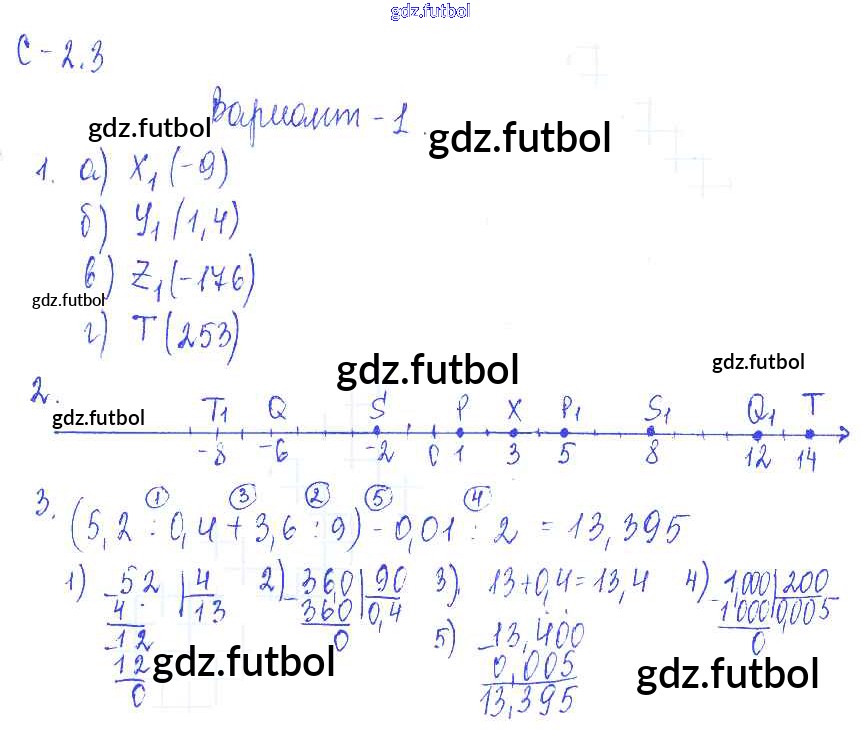 gdz.futbol
С-2.3
Вариант-1.
gdz.futbol gdz.futbol
1. а) X₁(-9)
б) У₁(1,4)
в) Z₁(-176)
gdz.futbol
г) T(253)
gdz.futbol gdz.futbol
2.
gdz.futbol
T₁ Q S P X P₁ S₁ Q₁ T
-8 -6 -2 0 1 3 5 8 12 14
① ③ ② ⑤ ④
3. (5,2 : 0,4 + 3,6 : 9) - 0,01 : 2 = 13,395
1) 52 | 4 2) 36,0 | 90 3) 13+0,4=13,4 4) 1,000 | 200
4 13 360 0,4 1 000 0,005
12 0 5) 13,400 0
12 gdz.futbol 0,005 gdz.futbol
0 13,395